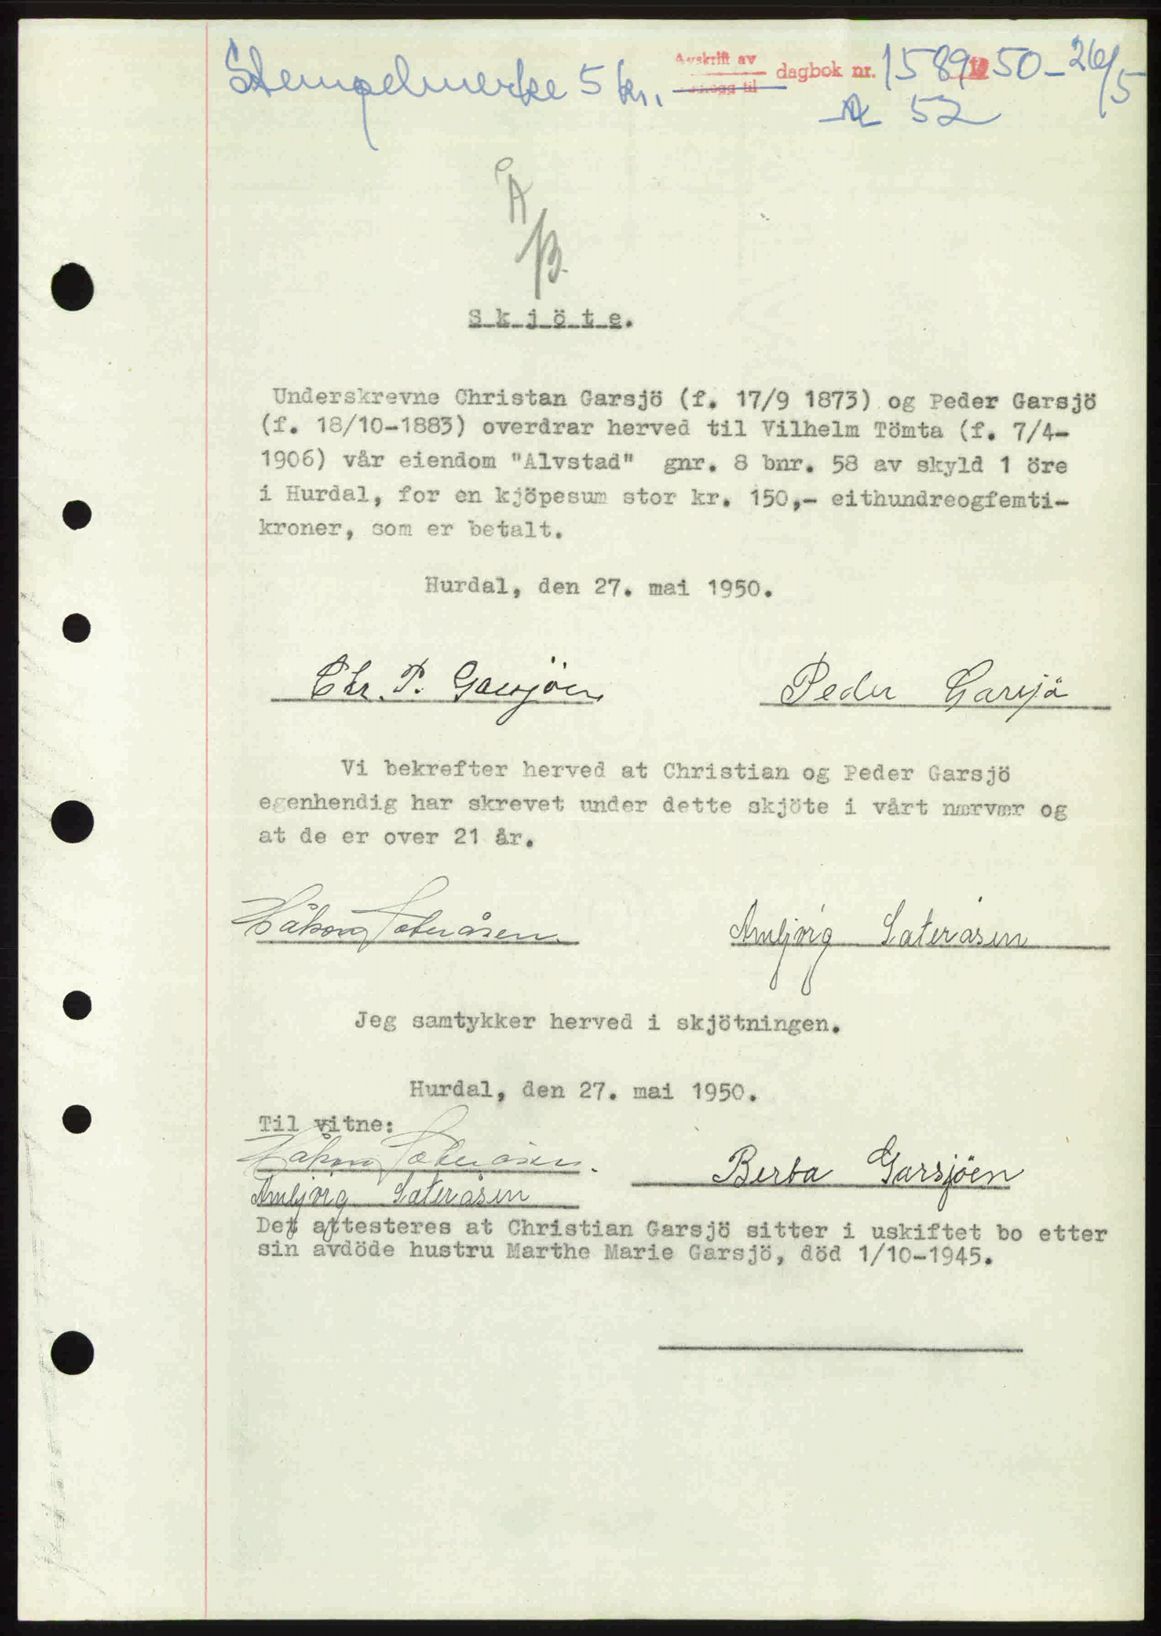 Stempelmerke 5 kr. Avskrift av dagbok nr. 1589 19 50 - 26/5
52
A
B.
Skjöte.
Underskrevne Christan Garsjö (f. 17/9 1873) og Peder Garsjö
(f. 18/10-1883) overdrar herved til Vilhelm Tömta (f. 7/4-
1906) vår eiendom "Alvstad" gnr. 8 bnr. 58 av skyld 1 öre
i Hurdal, for en kjöpesum stor kr. 150,- eithundreogfemti-
kroner, som er betalt.
Hurdal, den 27. mai 1950.
Chr. P. Garsjöen Peder Garsjö
Vi bekrefter herved at Christian og Peder Garsjö
egenhendig har skrevet under dette skjöte i vårt nærvær og
at de er over 21 år.
Håkon Sæteråsen Annbjörg Sæteråsen
Jeg samtykker herved i skjötningen.
Hurdal, den 27. mai 1950.
Til vitne:
Håkon Sæteråsen. Berta Garsjöen
Annbjörg Sæteråsen
Det attesteres at Christian Garsjö sitter i uskiftet bo etter
sin avdöde hustru Marthe Marie Garsjö, död 1/10-1945.